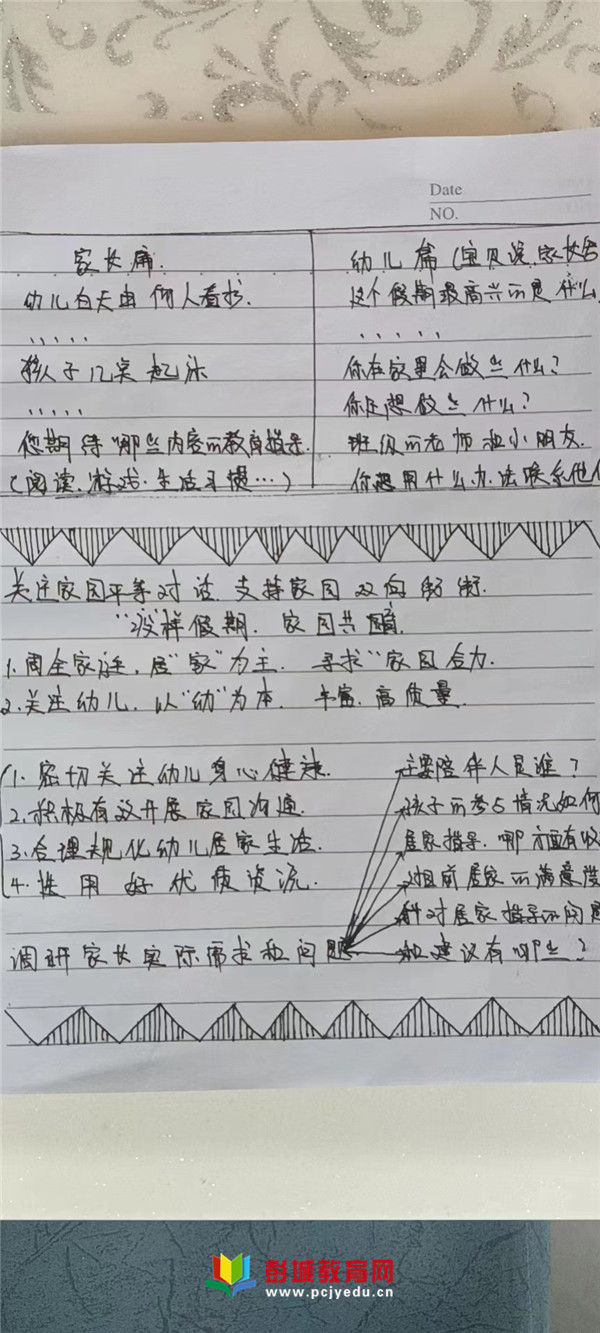 Date
NO.
家长篇
幼儿白天由何人看护.
.....
孩子几点起床
.....
您期待哪些内容的教育指导.
(阅读.游戏.生活习惯…)
幼儿篇(宝贝说,家长
这个假期最高兴的是什么
.....
你在家里会做些什么?
你还想做些什么?
班级的老师和小朋友.
你想用什么办法联系他们
关注家园平等对话 支持家园双向
样假期. 家园共
1.周全家证,居"家"为主. 寻求"家园合力.
2.关注幼儿.以"幼"为本. 丰富.高质量.
1.密切关注幼儿身心健康.
2.积极有效开展家园沟通.
3.合理规化幼儿居家生活.
4.使用好优质资流.
调研家长实际需求和问题
主要陪伴人员谁?
孩子的参与情况如何
居家指导.哪方面有收
对目前居家的满意度
针对居家指导的问题
和建议有哪些?
彭城教育网
www.pcjyedu.cn